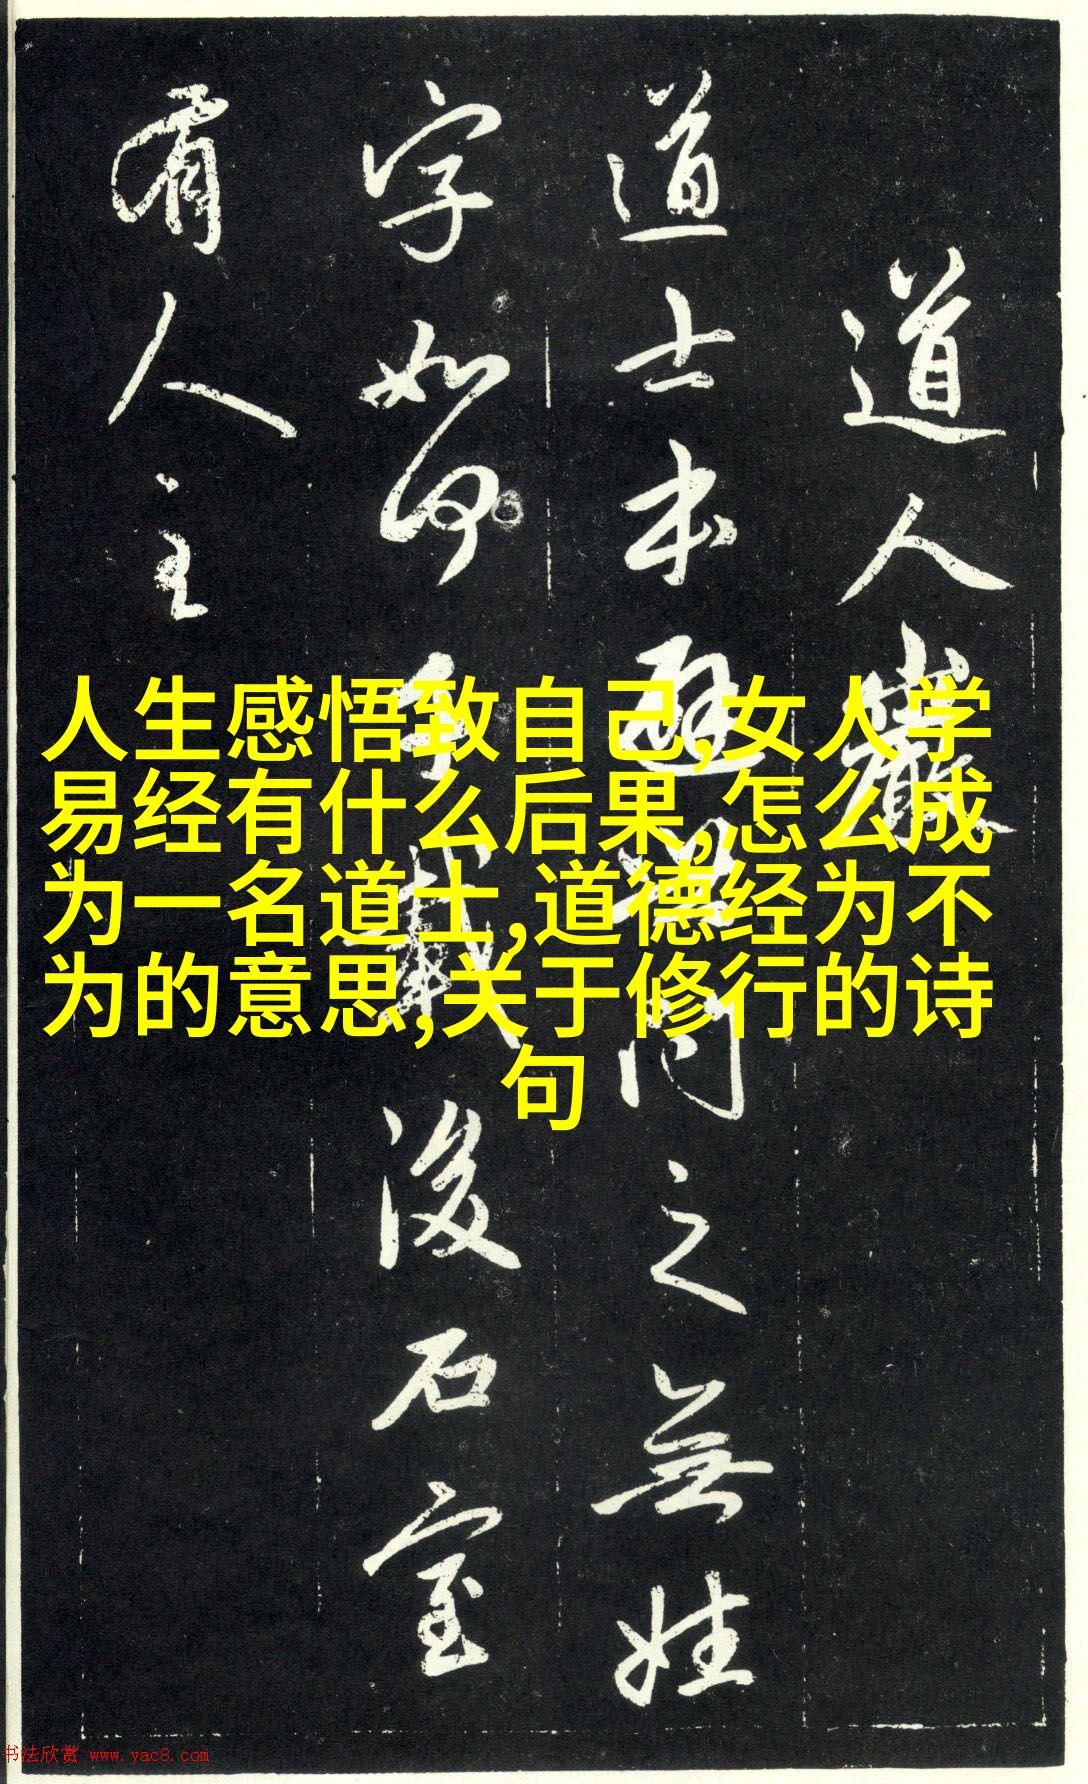 道人巖
道士本避□問之無姓
字如何千載後石室
有人主
人生感悟致自己,女人学
易经有什么后果,怎么成
为一名道士,道德经为不
为的意思,关于修行的诗
句
书法欣赏 www.yac8.com